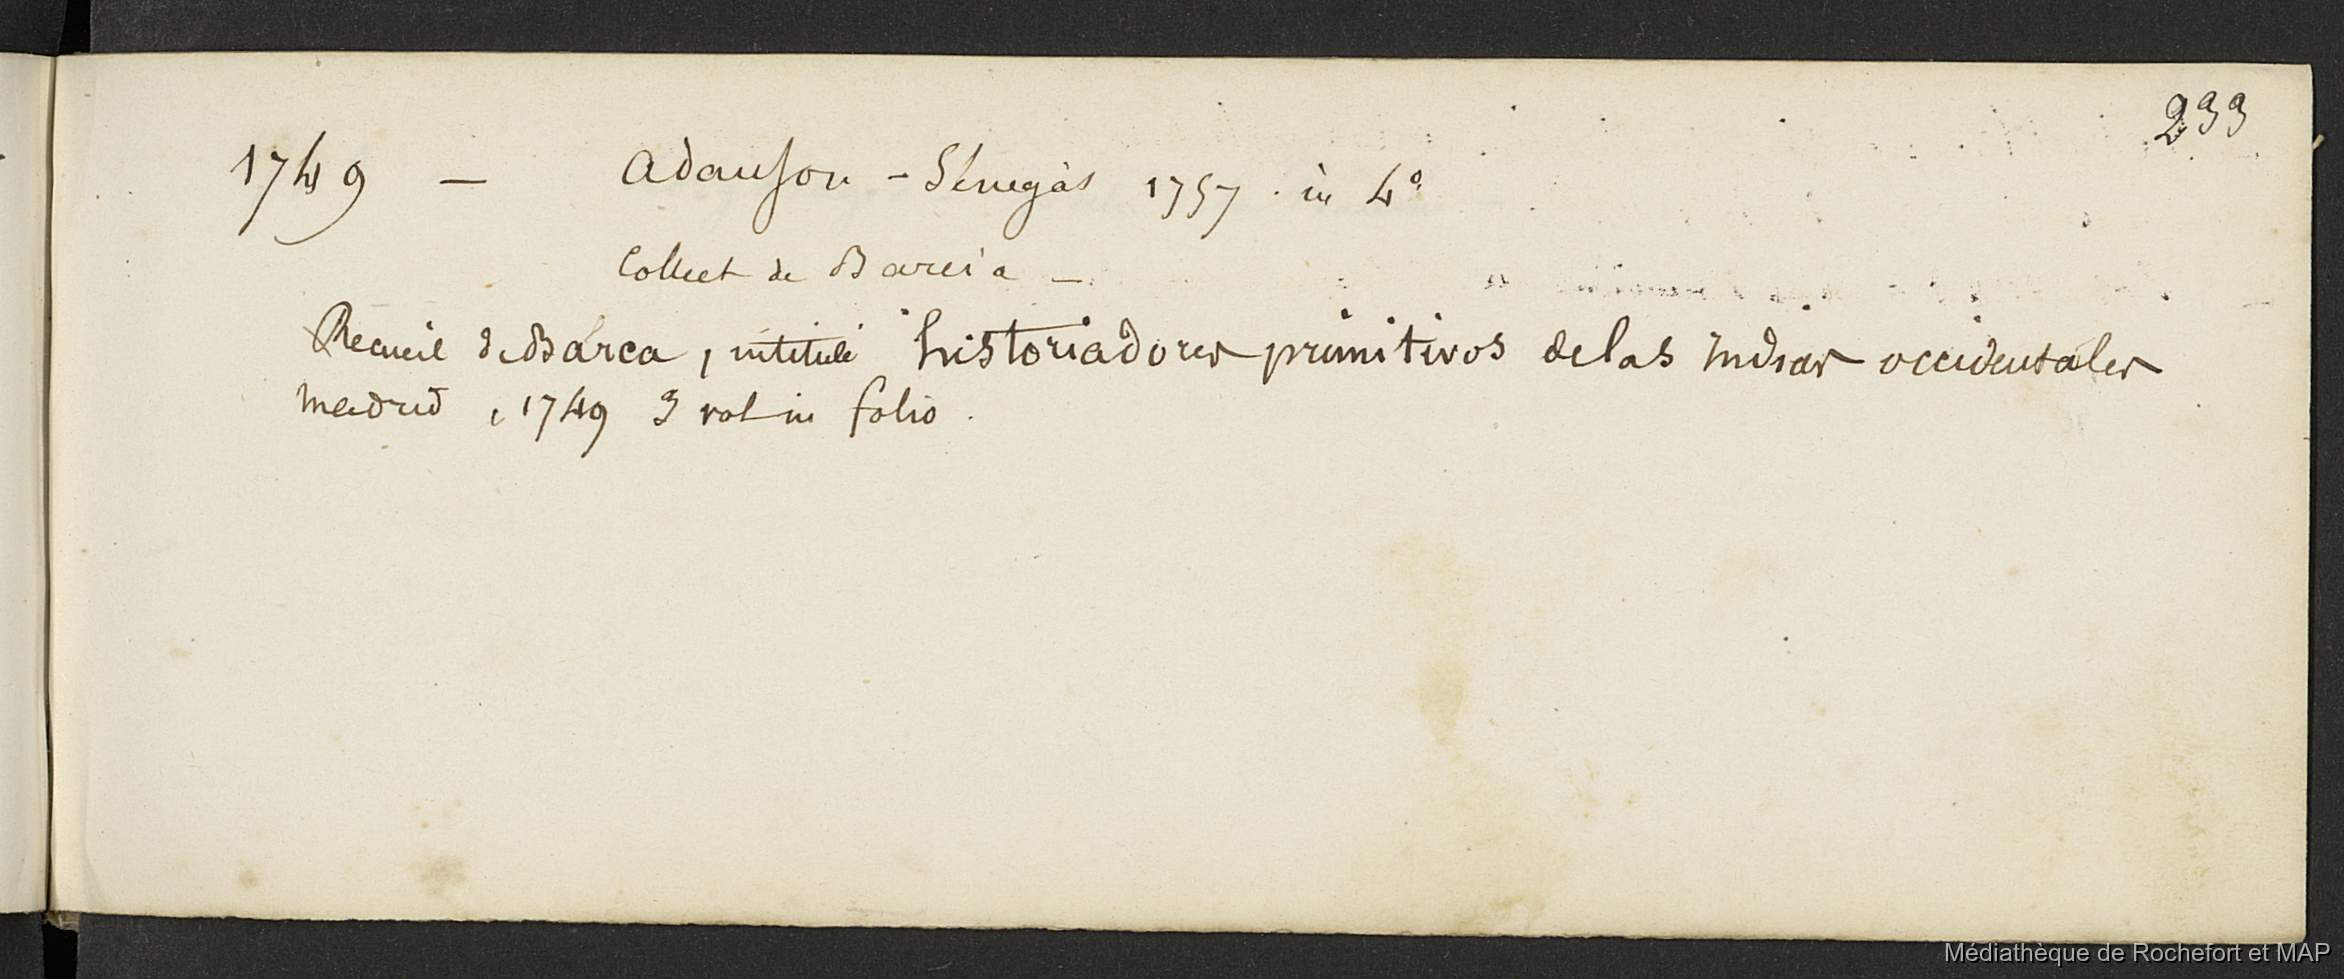 233
1749 — Adanson - Sénégal 1757. in 4°
Collect de Barcia —
Recueil de Barca, intitulé historiadores primitivos de las Indias occidentales
Madrid, 1749 3 vol in folio.
Médiathèque de Rochefort et MAP